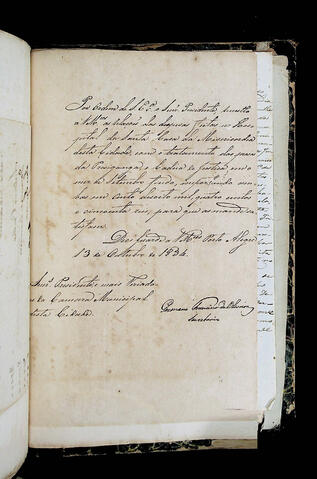 Por Ordem de S. Ex.ª o Snr. Presidente, remetto
a V. M.ces as relaçoes das despezas feitas no Hos-
pital da Santa Caza da Mizericordia
desta Cidade, com o tratamento dos prezos
da Prezigange, e Cadea de Justiça em o
mez de Setembro findo, importando am-
bas em cento dezoito mil, quatro centos
e cincoenta reis, para que as mande sa-
tisfazer.
Deos Guarde a V. M.ces Porto Alegre
13 de Outubro de 1834.
Snr.es Presidente, e mais Veriado-
res da Camara Municipal
desta Cidade.
Germano Francisco de Oliveira
Secretario